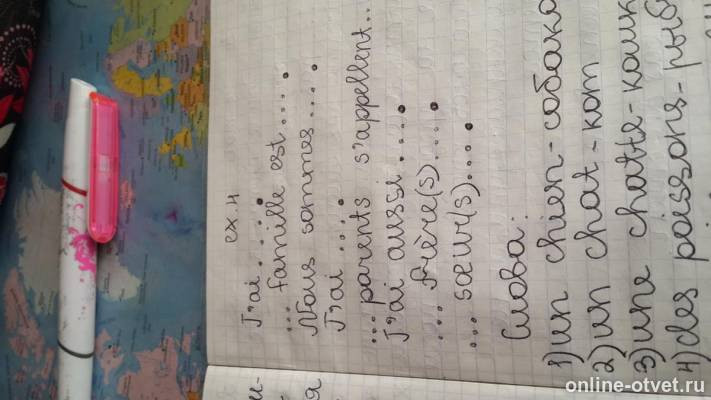 ex. 4
J'ai ....
... famille est ....
Nous sommes ....
J'ai ....
... parents s'appellent ...
J'ai aussi ....
... frère(s) ....
... sœur(s) ....
Слова:
1) un chien - собака
2) un chat - кот
3) une chatte - кошк
4) des poissons - рыб
и-
я
online-otvet.ru